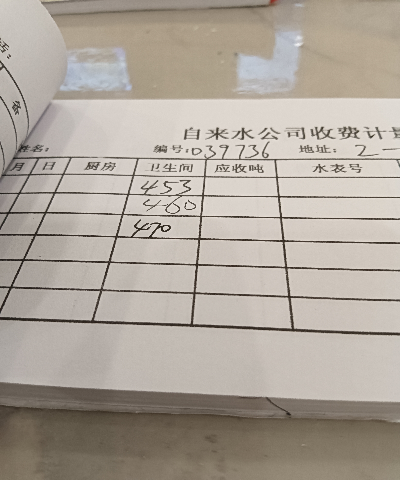 话:
备
自来水公司收费计量
姓名: 编号:039736 地址: 2-
月 日 厨房 卫生间 应收吨 水表号
453
460
470